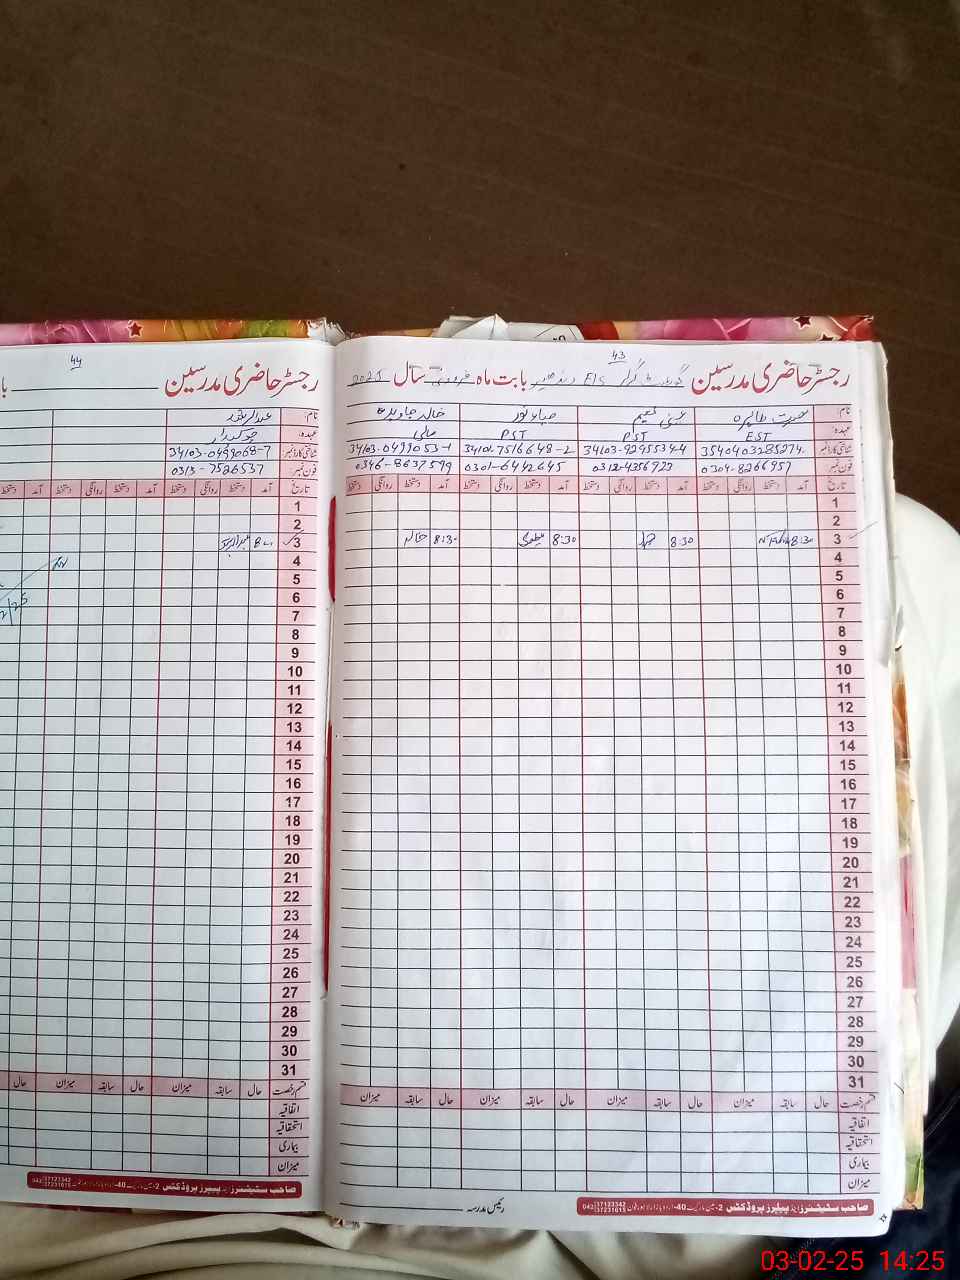 43
رجسٹر حاضری مدرسین گورنمنٹ گرلز E/S بابت ماہ فروری سال 2025
نام:
عہدہ: EST PST PST مالی
شناختی کارڈ نمبر: 3540403285274 34103-9295534-4 34101-7516648-2 34103-0499053-1
فون نمبر: 0304-8266957 0312-4356923 0301-6442645 0346-8637599
تاریخ آمد دستخط روانگی دستخط آمد دستخط روانگی دستخط آمد دستخط روانگی دستخط آمد دستخط روانگی دستخط
1
2
3 8:30 8:30 8:30 8:30 خالد
4
5
6
7
8
9
10
11
12
13
14
15
16
17
18
19
20
21
22
23
24
25
26
27
28
29
30
31
قسم رخصت حال سابقہ میزان حال سابقہ میزان حال سابقہ میزان حال سابقہ میزان
اتفاقیہ
استحقاقیہ
بیماری
میزان
رئیس مدرسہ
صاحب سٹیشنرز اینڈ پیپرز پروڈکٹس 042 37123342 37231615
44
رجسٹر حاضری مدرسین
نام:
عہدہ: چوکیدار
شناختی کارڈ نمبر: 34103-0499068-7
فون نمبر: 0313-7526537
تاریخ آمد دستخط روانگی دستخط آمد دستخط روانگی دستخط
1
2
3
4
5
6
7
8
9
10
11
12
13
14
15
16
17
18
19
20
21
22
23
24
25
26
27
28
29
30
31
قسم رخصت حال سابقہ میزان حال سابقہ میزان حال
اتفاقیہ
استحقاقیہ
بیماری
میزان
صاحب سٹیشنرز اینڈ پیپرز پروڈکٹس 042 37123342 37231615
03-02-25 14:25